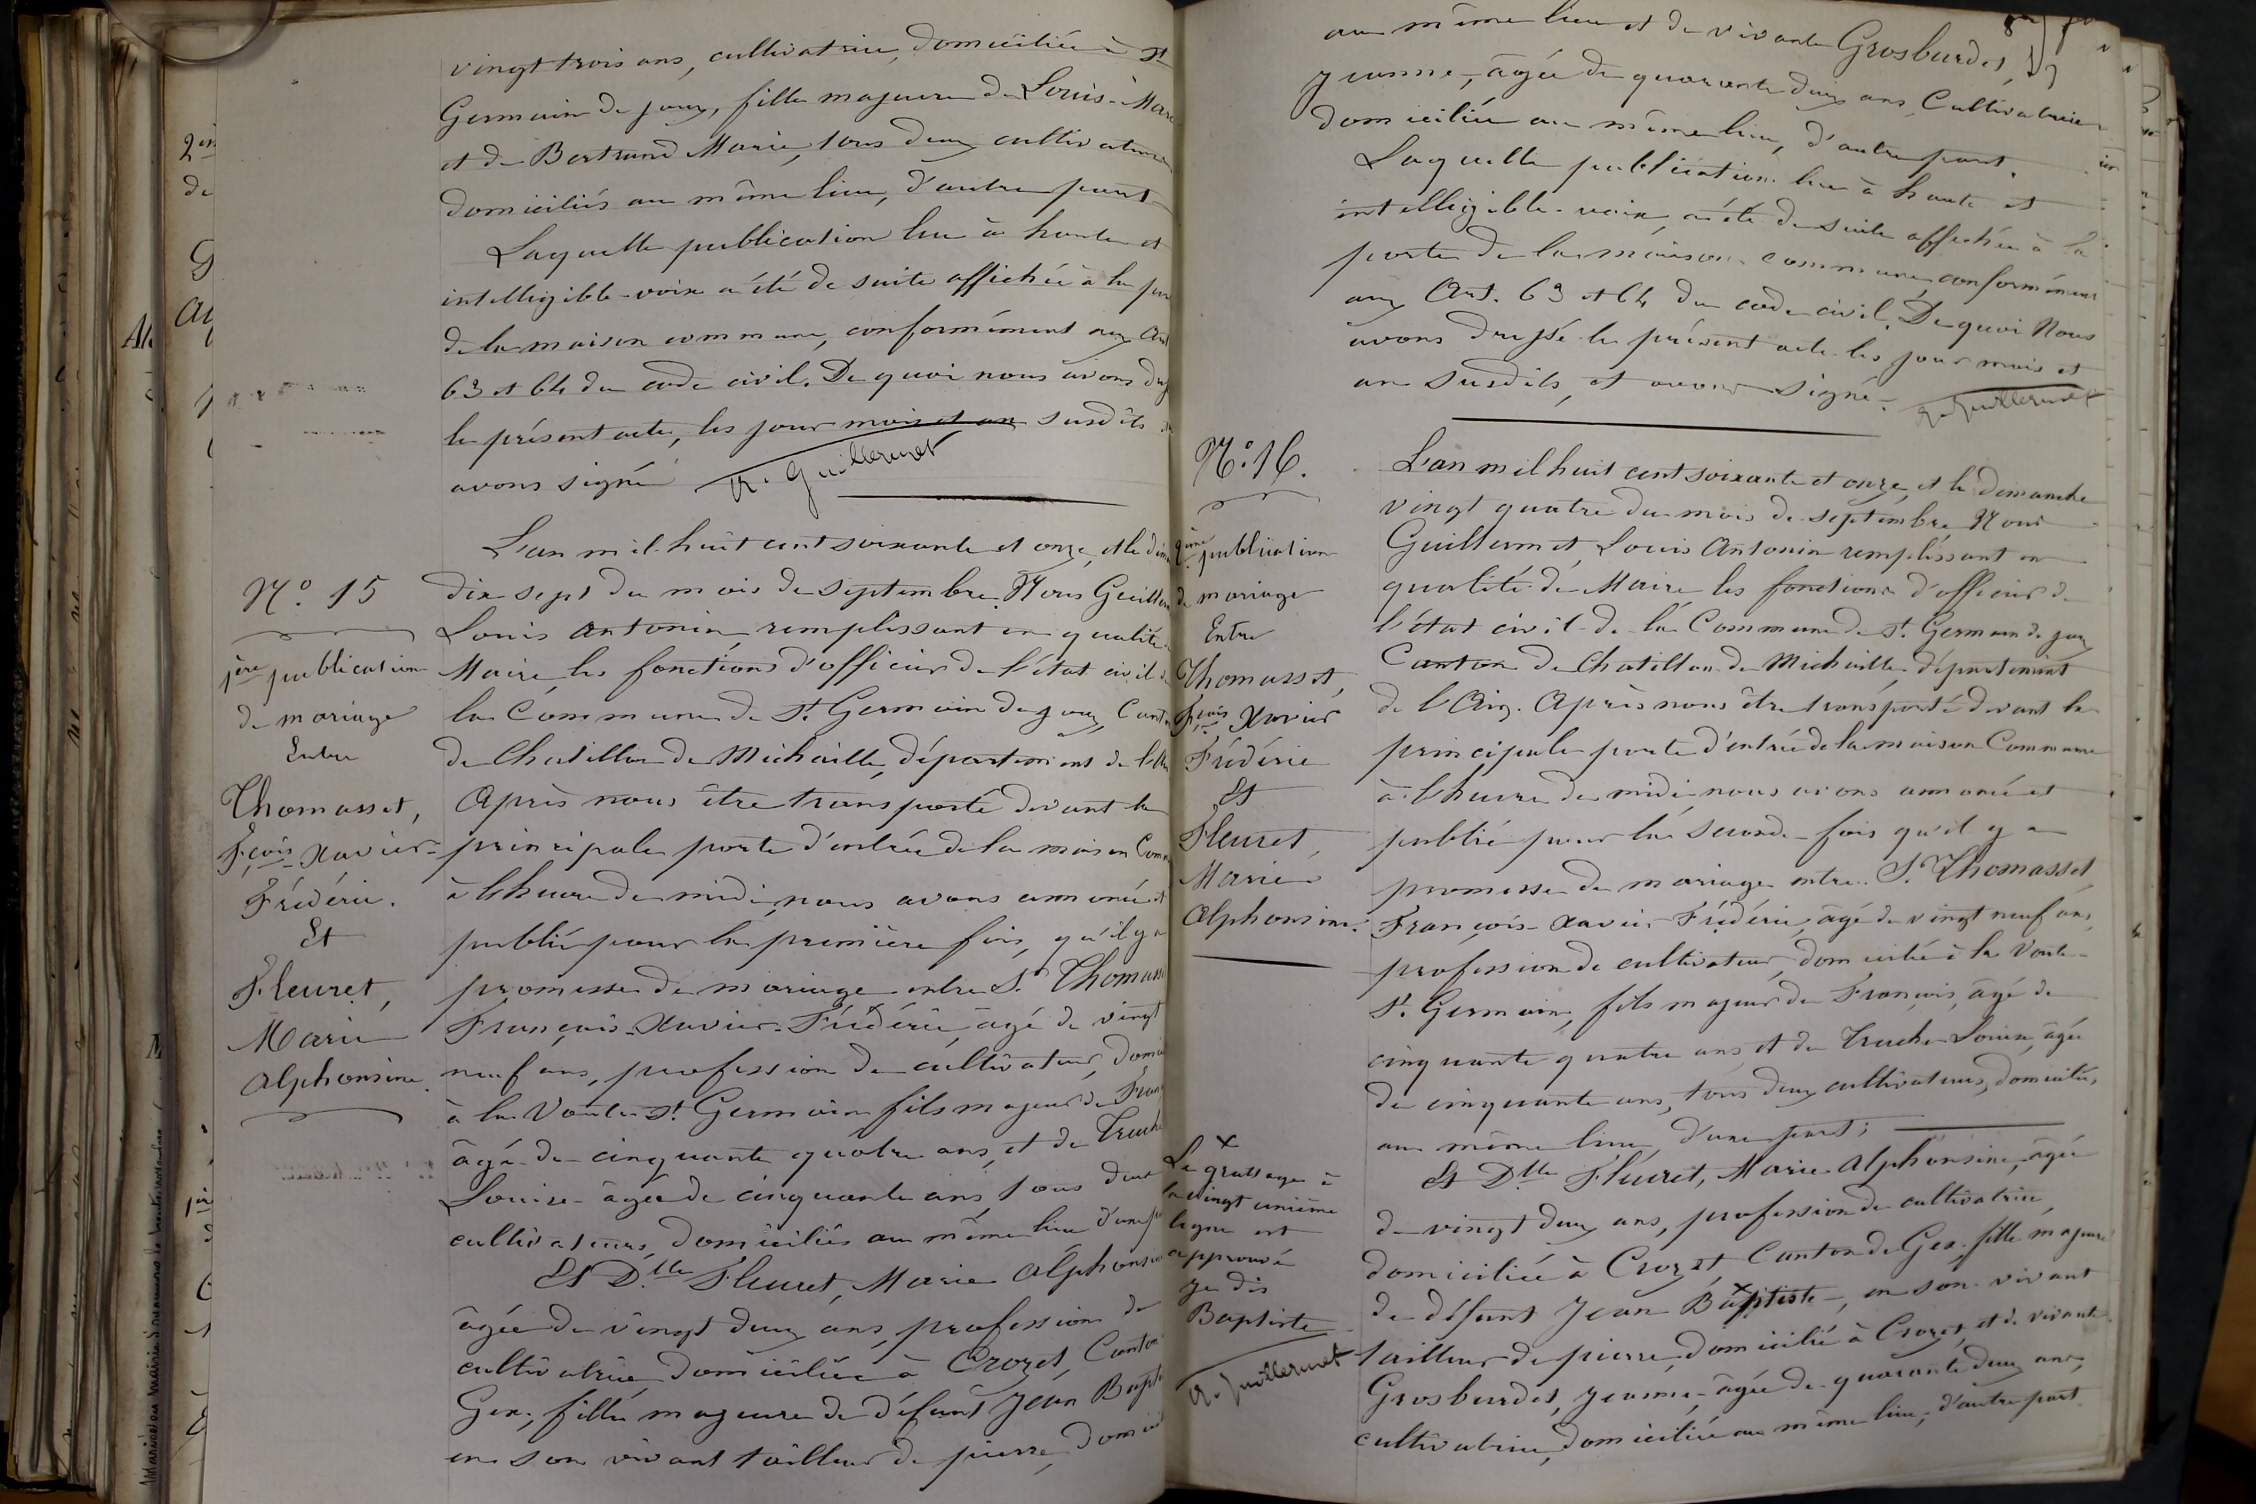 vingt trois ans, cultivatrice, domiciliée à St
Germain de joux, fille majeure de Louis-Marie
et de Bertrand Marie, tous deux cultivateurs
domiciliés au même lieu, d'autre part
Laquelle publication lue à haute et
intelligible voix a été de suite affichée à la
de la maison commune, conformément aux Art
63 et 64 du code civil. De quoi nous avons
le présent acte, les jour mois et an susdits
avons signé A. Guillermet
N.° 15
1ère publication
de mariage
Entre
Thomasset,
Fçois Xavier-
Frédéric.
Et
Fleuret,
Marie
Alphonsine.
L'an mil huit cent soixante et onze, et le
dix sept du mois de septembre. Nous
Louis Antonin remplissant en qualité
Maire, les fonctions d'officier de l'état civil
la Commune de St Germain de joux,
de Chatillon de Michaille, département de
Après nous être transporté devant la
principale porte d'entrée de la maison
à l'heure de midi nous avons annoncé et
publié pour la première fois, qu'il y a
promesse de mariage entre Sr
François-Xavier-Frédéric, âgé de vingt
neuf ans, profession de cultivateur,
à la Voute St Germain fils majeur de
âgé de cinquante quatre ans, et de
Louise âgée de cinquante ans, tous deux
cultivateurs, domiciliés au même lieu
Et Dlle Fleuret, Marie
âgée de vingt deux ans, profession de
cultivatrice domiciliée à Crozet, Canton
Gex, fille majeure de défunt Jean
en son vivant tailleur de pierre,
au même lieu et de vivante Grosburdet,
Jeanne, âgée de quarante deux ans, Cultivatrice
domiciliée au même lieu, d'autre part.
Laquelle publication lue à haute et
intelligible voix, a été de suite affichée à la
porte de la maison commune, conformément
aux Art. 63 et 64 du code civil. De quoi Nous
avons dressé le présent acte les jour mois et
an susdits, et avons signé. A. Guillermet
N.° 16.
2ème publication
de mariage
Entre
Thomasset,
Fçois Xavier
Frédéric
Et
Fleuret,
Marie
Alphonsine.
L'an mil huit cent soixante et onze, et le dimanche
vingt quatre du mois de septembre, Nous
Guillermet, Louis Antonin remplissant en
qualité de Maire les fonctions d'officier de
l'état civil de la Commune de St. Germain de joux
Canton de Chatillon de Michaille, département
de l'Ain. Après nous être transporté devant la
principale porte d'entrée de la maison Commune
à l'heure de midi nous avons annoncé et
publié pour la seconde fois qu'il y a
promesse de mariage entre Sr Thomasset
François-Xavier-Frédéric, âgé de vingt neuf ans,
profession de cultivateur, domicilié à la Voute
St. Germain, fils majeur de François, âgé de
cinquante quatre ans et de Truche Louise, âgée
de cinquante ans, tous deux cultivateurs, domiciliés,
au même lieu, d'une part;
Et Dlle Fleuret, Marie Alphonsine, âgée
de vingt deux ans, profession de cultivatrice,
domiciliée à Crozet Canton de Gex, fille majeure
de défunt Jean Baptiste, en son vivant
tailleur de pierre, domicilié à Crozet, et de vivante
Grosburdet, Jeanne, âgée de quarante deux ans,
cultivatrice, domiciliée au même lieu, d'autre part
x
Le grattage à
la vingt unième
ligne est
approuvé
je dis
Baptiste
A. Guillermet